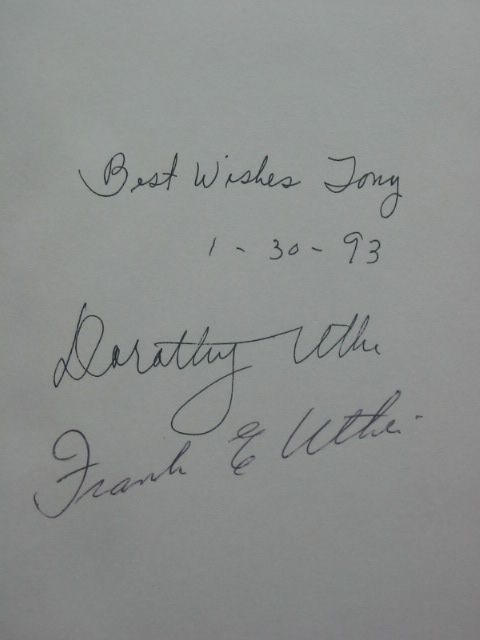 Best Wishes Tony
1-30-93
Dorothy Uthe
Frank E Uthe